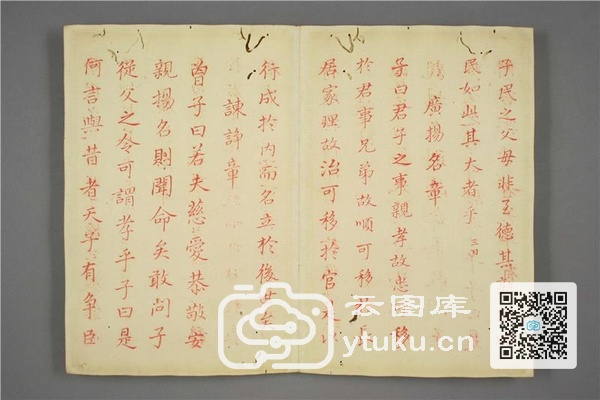 子民之父母非至德其
民如此其大者乎 三四
廣揚名章
子曰君子之事親孝故忠可移
於君事兄弟故順可移
居家理故治可移於官是以
行成於内而名立於後世矣
諫諍章
曾子曰若夫慈愛恭敬安
親揚名則聞命矣敢問子
從父之令可謂孝乎子曰是
何言與昔者天子有争臣
云图库
ytuku.cn